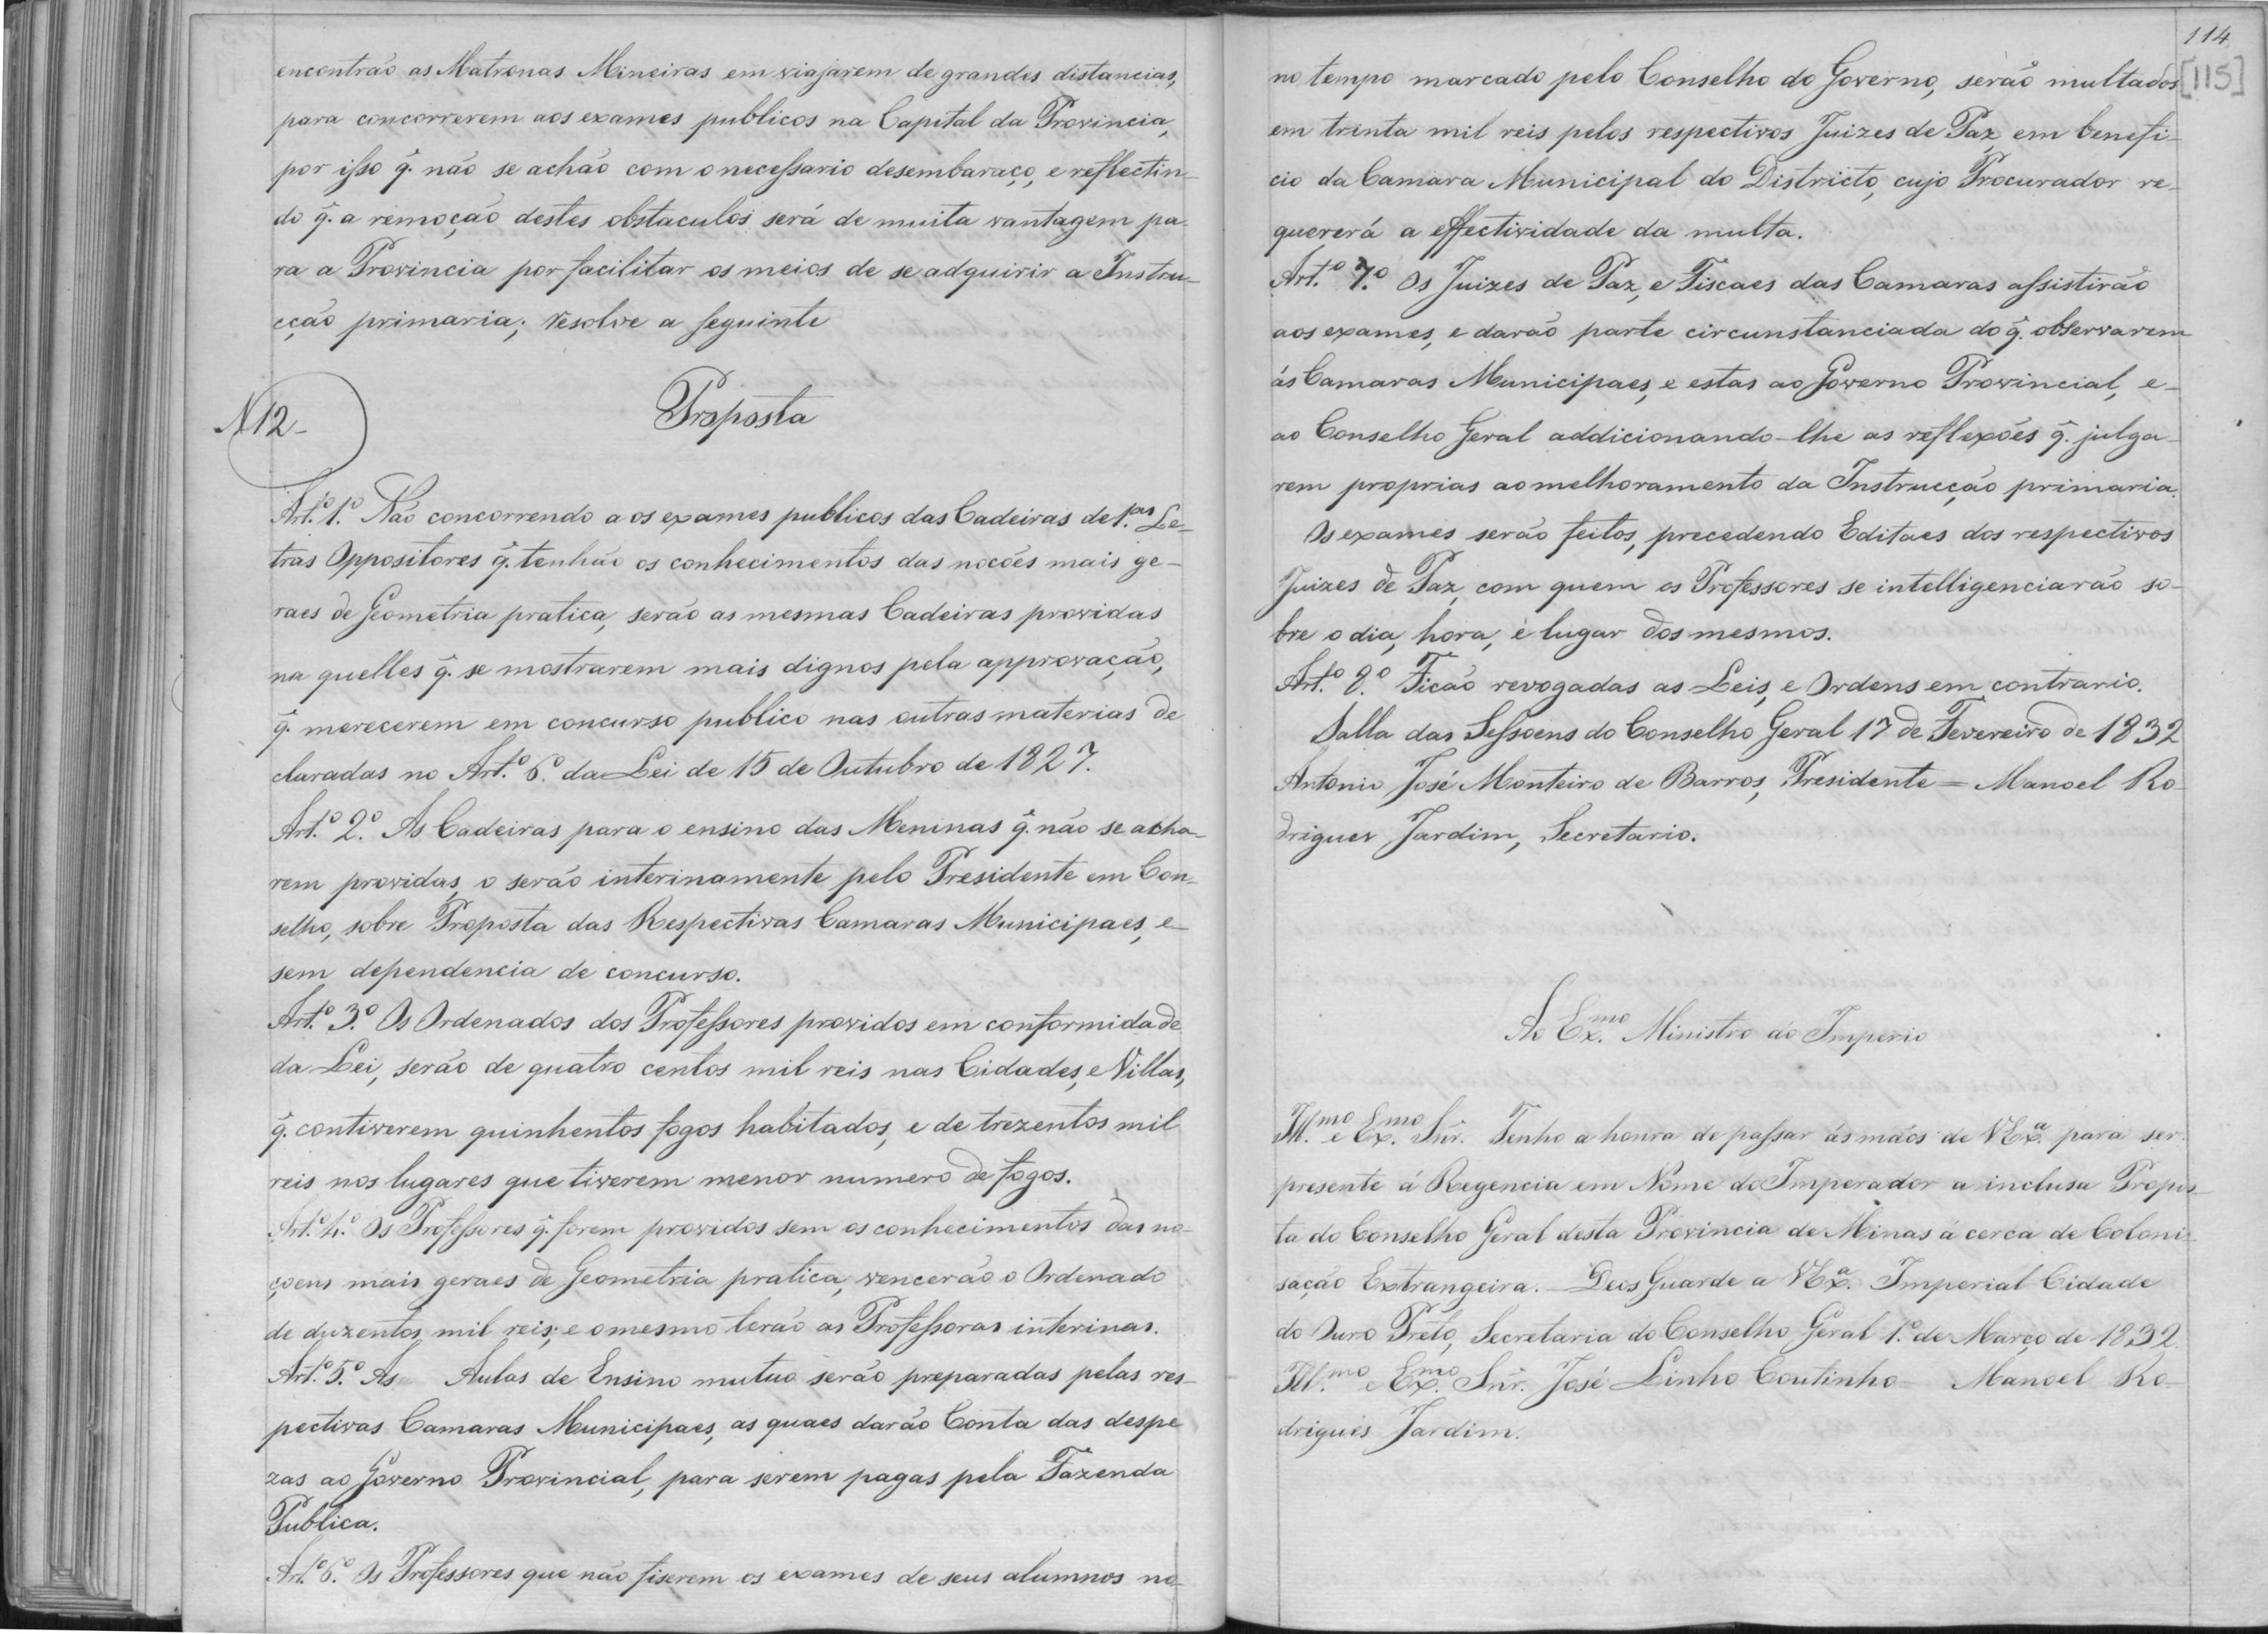 encontrão as Matronas Mineiras em viajarem de grandes distancias,
para concorrerem aos exames publicos na Capital da Provincia,
por isso q̃. não se achão com o necessario desembaraço, e reflectin-
do q̃. a remoção destes obstaculos será de muita vantagem pa-
ra a Provincia por facilitar os meios de se adquirir a Instru-
cção primaria; resolve a seguinte
N12-
Proposta
Art.º 1.º Não concorrendo a os exames publicos das Cadeiras de 1.as Le-
tras Oppositores q̃. tenhão os conhecimentos das nocões mais ge-
raes de Geometria pratica, serão as mesmas Cadeiras providas
na quelles q̃. se mostrarem mais dignos pela approvação,
q̃. merecerem em concurso publico nas outras materias de
claradas no Art.º 6.º da Lei de 15 de Outubro de 1827.
Art.º 2.º As Cadeiras para o ensino das Meninas q̃. não se acha-
rem providas, o serão interinamente pelo Presidente em Con-
selho, sobre Proposta das Respectivas Camaras Municipaes, e
sem dependencia de concurso.
Art.º 3.º Os Ordenados dos Professores providos em conformidade
da Lei, serão de quatro centos mil reis nas Cidades, e Villas,
q̃. contiverem quinhentos fogos habitados, e de trezentos mil
reis nos lugares que tiverem menor numero de fogos.
Art.º 4.º Os Professores q̃. forem providos sem os conhecimentos das no-
çoens mais geraes de Geometria pratica, vencerão o Ordenado
de duzentos mil reis; e o mesmo terão as Professoras interinas.
Art.º 5.º As Aulas de Ensino mutuo serão preparadas pelas res-
pectivas Camaras Municipaes, as quaes darão Conta das despe
zas ao Governo Provincial, para serem pagas pela Fazenda
Publica.
Art.º 6.º Os Professores que não fiserem os exames de seus alumnos no
114
[115]
no tempo marcado pelo Conselho do Governo, serão multados
em trinta mil reis pelos respectivos Juizes de Paz, em benefi-
cio da Camara Municipal do Districto, cujo Procurador re-
quererá a effectividade da multa.
Art.º 7.º Os Juizes de Paz, e Fiscaes das Camaras assistirão
aos exames, e darão parte circunstanciada do q̃. observarem
ás Camaras Municipaes, e estas ao Governo Provincial, e-
ao Conselho Geral addicionando-lhe as reflexões q̃. julga-
rem proprias ao melhoramento da Instrucção primaria.
Os exames serão feitos, precedendo Editaes dos respectivos
Juizes de Paz, com quem os Professores se intelligenciarão so-
bre o dia, hora, e lugar dos mesmos.
Art.º 8.º Ficão revogadas as Leis, e Ordens em contrario.
Salla das Sessoens do Conselho Geral 17 de Fevereiro de 1832
Antonio José Monteiro de Barros, Presidente = Manoel Ro-
drigues Jardim, Secretario.
Ao Ex.mo Ministro do Imperio
Ill.mo e Ex.mo Snr. Tenho a honra de passar ás mãos de VEx.a para ser
presente á Regencia em Nome do Imperador a inclusa Propos-
ta do Conselho Geral desta Provincia de Minas á cerca de Coloni-
sação Extrangeira. - Deos Guarde a VEx.a Imperial Cidade
do Ouro Preto, Secretaria do Conselho Geral 1.º de Março de 1832.
Ill.mo e Ex.mo Snr. José Linho Coutinho - Manoel Ro-
drigues Jardim.